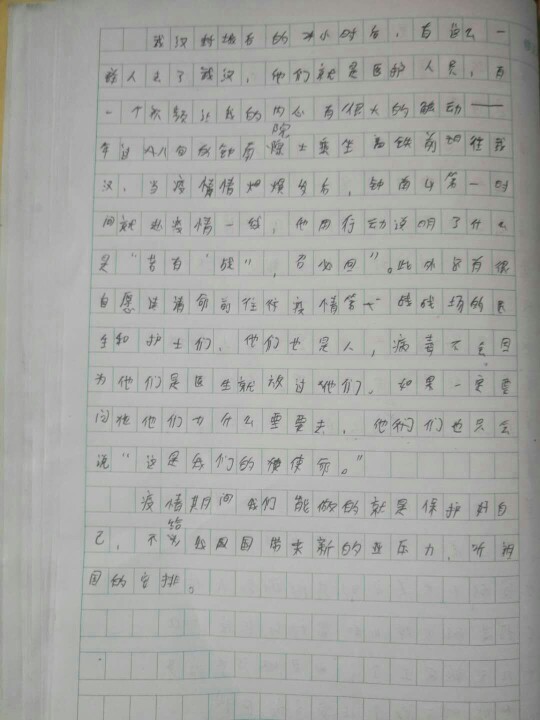 武汉封城后的24小时后，有这么一
群人去了武汉，他们就是医护人员，有
一个视频让我的内心有很大的触动——
年过八旬的钟南院士乘坐高铁前往武
汉，当疫情爆发后，钟南山第一时
间就赴疫情一线，他用行动说明了什么
是“若有战”，召必回”。此外还有很
自愿请命前往疫情第一战场的医
生和护士们，他们也是人，病毒不会因
为他们是医生就放过他们，如果一定要
问他们为什么要去，他们也只会
说“这是我们的使命。”
疫情期间我们能做的就是保护好自
己，不给我国带来新的压力，听
国的安排。